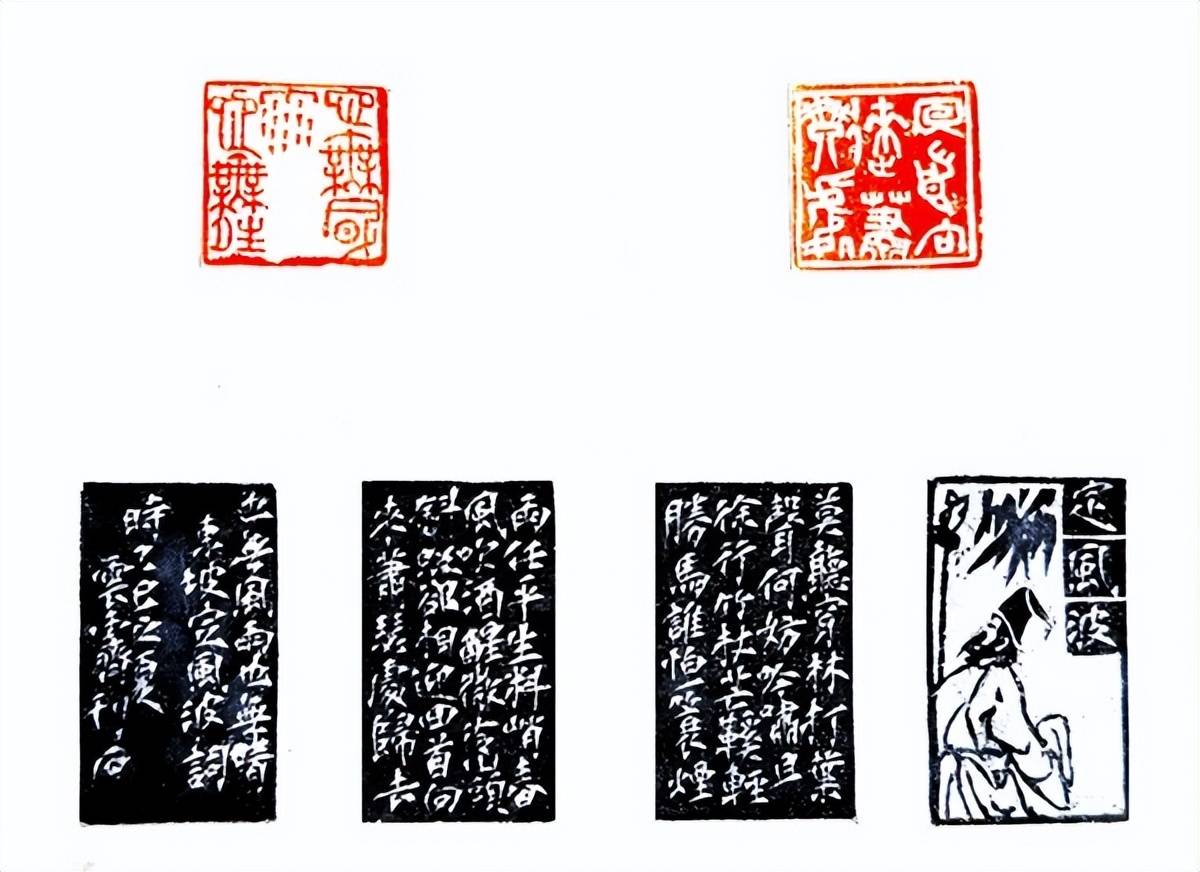 回首向
來蕭
瑟處
也無風
雨
也無晴
定風波
莫聽穿林打葉
聲何妨吟嘯且
徐行竹杖芒鞵輕
勝馬誰怕一蓑煙
雨任平生料峭春
風吹酒醒微冷山頭
斜照卻相迎回首向
來蕭瑟處歸去
也無風雨也無晴
東坡定風波詞
時乙巳之夏
雲齋刊石